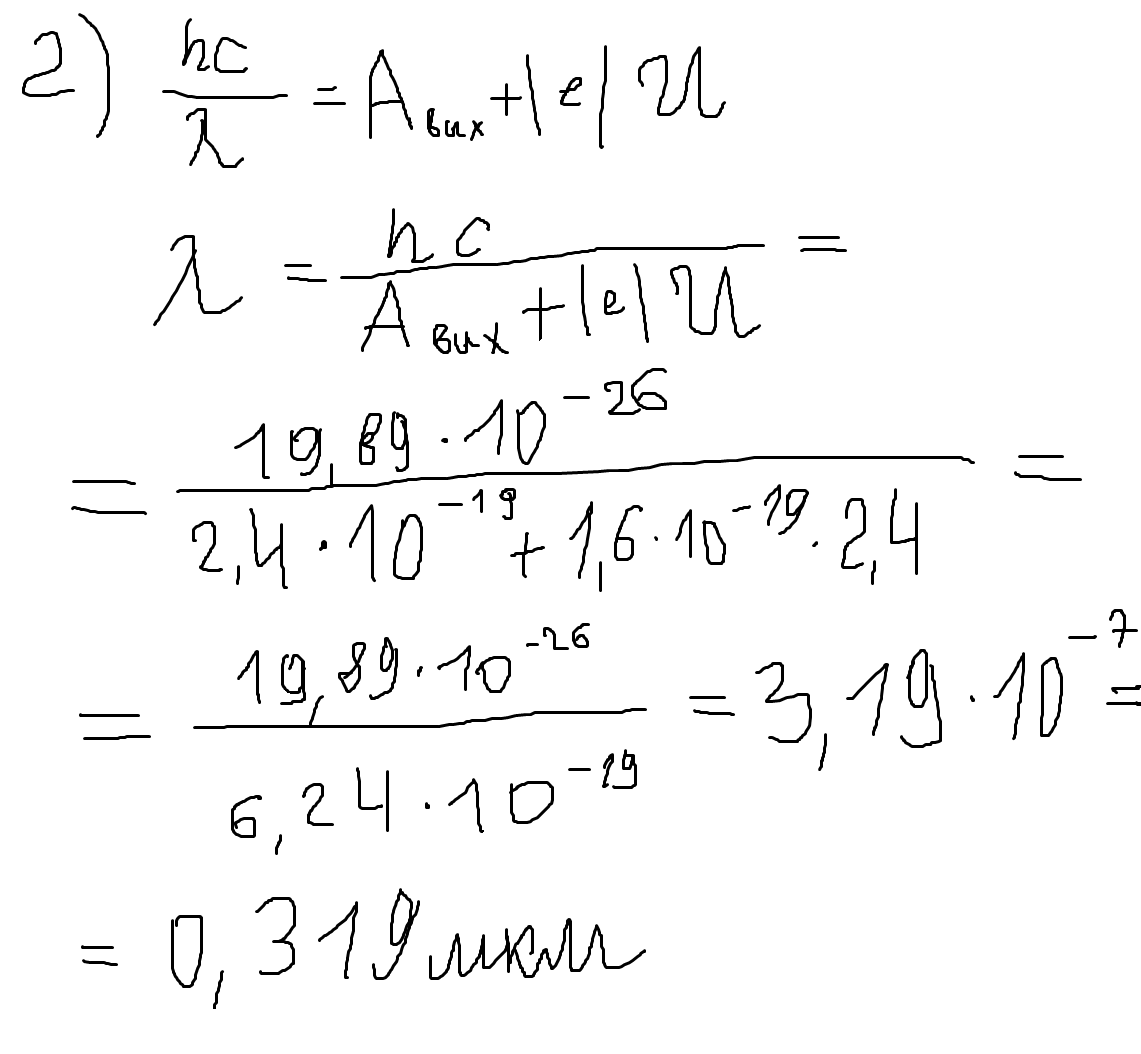 2) hc/λ = Aвих + |e| U
λ = hc/(Aвих + |e| U) =
= 19,89 · 10^-26/(2,4 · 10^-19 + 1,6 · 10^-19 · 2,4) =
= 19,89 · 10^-26/(6,24 · 10^-19) = 3,19 · 10^-7 =
= 0,319 мкм